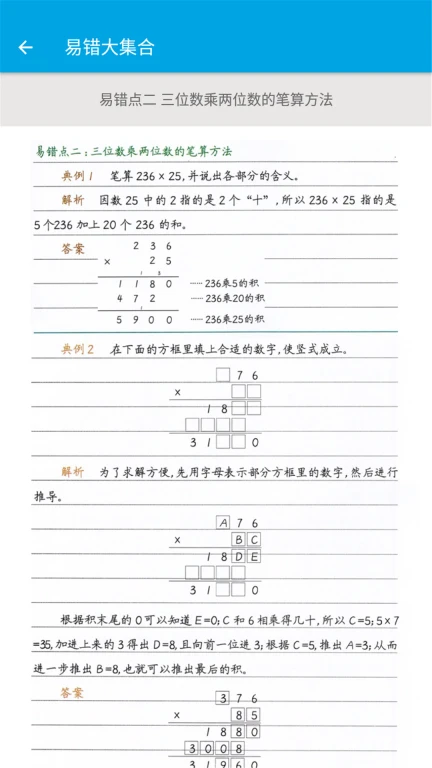 易错大集合
易错点二 三位数乘两位数的笔算方法
易错点二:三位数乘两位数的笔算方法
典例1 笔算236×25,并说出各部分的含义。
解析 因数25中的2指的是2个“十”,所以236×25指的是
5个236加上20个236的和。
答案 2 3 6
× 2 5
1 3
1 1 8 0 ······236乘5的积
4 7 2 ······236乘20的积
1
5 9 0 0 ······236乘25的积
典例2 在下面的方框里填上合适的数字,使竖式成立。
□ 7 6
× □ □
1 8 □ □
□ □ □ □
3 1 □ □ 0
解析 为了求解方便,先用字母表示部分方框里的数字,然后进行
推导。
A 7 6
× B C
1 8 D E
□ □ □ □
3 1 □ □ 0
根据积末尾的0可以知道E=0;C和6相乘得几十,所以C=5;5×7
=35,加进上来的3得出D=8,且向前一位进3;根据C=5,推出A=3;从而
进一步推出B=8,也就可以推出最后的积。
答案 3 7 6
× 8 5
1 8 8 0
3 0 0 8
3 1 9 6 0